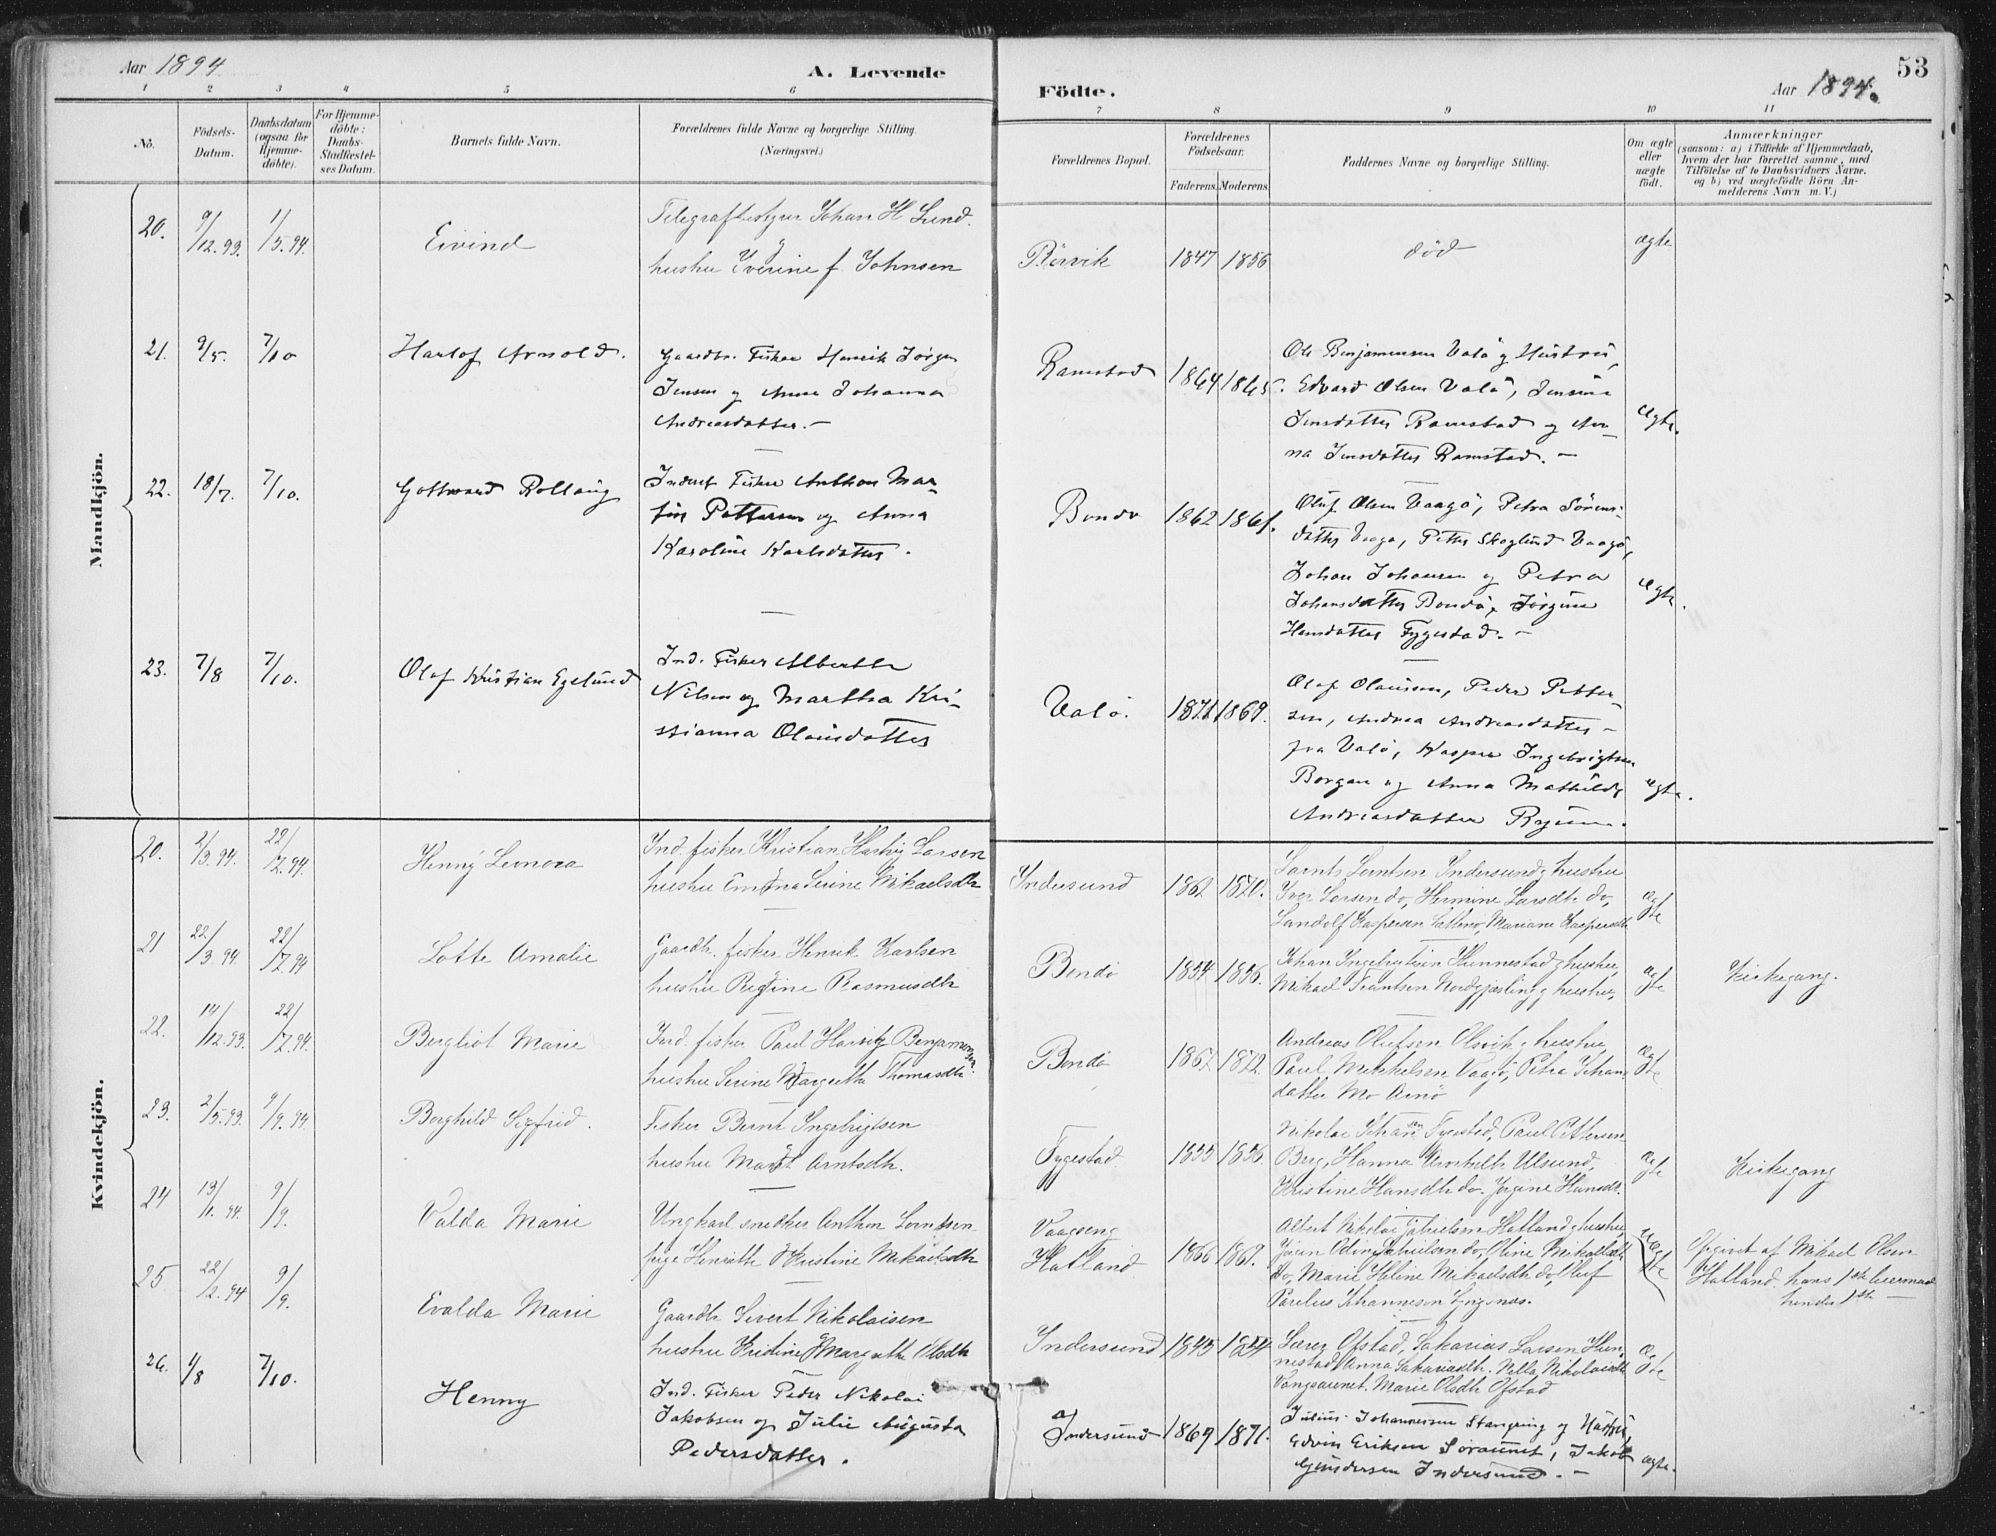 Aar 1894
A. Levende
Födte.
Aar 1894.
53
1 2 3 4 5 6 7 8 9 10 11
No.
Födsels-
Datum.
Daabsdatum
(ogsaa for
Hjemme-
döbte).
For Hjemme-
döbte:
Daabs-
Stadfæstel-
ses Datum.
Barnets fulde Navn.
Forældrenes fulde Navne og borgerlige Stilling
(Næringsvei.)
Forældrenes Bopæl.
Forældrenes
Födselsaar.
Faderens. Moderens.
Faddernes Navne og borgerlige Stilling.
Om ægte
eller
uægte
födt.
Anmærkninger
(saasom: a) i Tilfælde af Hjemmedaab,
hvem der har forrettet samme, med
Tilföielse af to Daabsvidners Navne,
og b) ved uægtefödte Börn An-
melderens Navn m. V.)
Mandkjön.
20. 9/12.93. 1/5.94. Eivind
Telegrafbestyrer Johan H. Lund
og
hustru Iverine f. Johnsen
Rörvik 1847 1856 död ægte
21. 9/5. 7/10 Harlof Arnold.
Gaardbr. Fisker Henrik Jörgen
Jensen og Anna Johanna
Andreasdatter. –
Ramstad 1864 1865.
Ole Benjaminsen Valö og Hustru,
Edvard Olsen Valö, Jensine
Jensdatter Ramstad og An-
na Jensdatter Ramstad. –
ægte.
22. 18/7. 7/10. Gottward Rollaug
Inderst Fisker Anthon Mar-
tin Pettersen og Anna
Karoline Karlsdatter.
Bondö 1862 1861.
Oluf Olsen Vaagö, Petra Sörens-
datter Vaagö, Petter Skoglund Vaagö,
Johan Johansen og Petra
Johansdatter Bondö, Jörgine
Hansdatter Fygestad. –
ægte.
23. 7/8 7/10. Olaf Kristian Egelund
Ind. Fisker Alberth
Nilsen og Martha Kri-
stianna Olausdatter
Valö. 1871 1869.
Olaf Olausen, Peder Petter-
sen, Andrea Andreasdatter –
fra Valö, Kasper Ingebrigtsen
Borgan og Anna Mathilde
Andreasdatter Ryum.
ægte.
Kvindekjön.
20. 2/3.94. 22/7.94. Henny Leonora
Ind. fisker Kristian Hartvig Larsen
hustru Emma Serine Mikaelsdtr
Indersund 1862 1870.
Lornts Lorntsen Indersund & hustru
Iver Larsen do, Hermine Larsdtr do,
Landolf Kaspersen, Mariane Kaspersdtr
ægte
21 22/3.94. 22/7.94 Lotte Amalie
Gaardbr. fisker Henrik Karlsen
hustru Regine Rasmusdtr
Bondö 1854 1856.
Johan Ingebrigtsen Hunnestad & hustru,
Mikael Frantsen Nordgjæsling & hustru,
ægte Kirkegang.
22. 14/12.93. 22/7.94. Bergliot Marie
Ind. fisker Paul Hartvig Benjaminsen
hustru Serine Margrethe Thomasdtr.
Bondö 1867 1872.
Andreas Olufsen Olsvik & hustru,
Paul Mikkelsen Vaagö, Petra Johans-
datter Mo Arnö
ægte
23. 2/5.93. 9/9.94. Borghild Sigfrid.
Fisker Bernt Ingebrigtsen
hustru Marit Arntsdtr.
Fygestad 1855 1856.
Nikolai Johansen Fygestad, Paul Pettersen
Berg, Hanna Ulsund,
Kristine Hansdtr do. Jörgine Hansdtr.
ægte Kirkegang
24 13/1.94. 9/9. Valda Marie
Ungkarl snedker Anthon Lorntsen
pige Henrikke Kristine Mikaelsdtr
Vaagseng
Hatland 1866 1867.
Albert Nikolai Hatland & hustru
Oline Mikaelsdtr
do, Marie Heline Mikaelsdtr do, Oluf
Parelius Johannesen
uægte
Opgivet af Mikael Olsen
Hatland. hans 1ste leiermaal
hendes 1ste –
25 22/2.94 9/9. Evalda Marie
Gaardbr Sivert Nikolaisen
hustru Kristine Margrethe Olsdtr
Indersund 1845 1854.
Ofstad, Sakarias Larsen Hun-
nestad, Anna Sakariasdtr. Nella Nikolaisdtr
Vangsaunet. Marie Olsdtr Ofstad
ægte
26. 1/8 7/10. Henny
Ind. Fisker Peder Nikolai
Jakobsen og Julie Augusta
Pedersdatter.
Indersund 1869 1871.
Julius Johannesen Stangring og Hustru,
Edvin Eriksen Söraunet, Jakob
Gundersen Indersund. –
ægte.